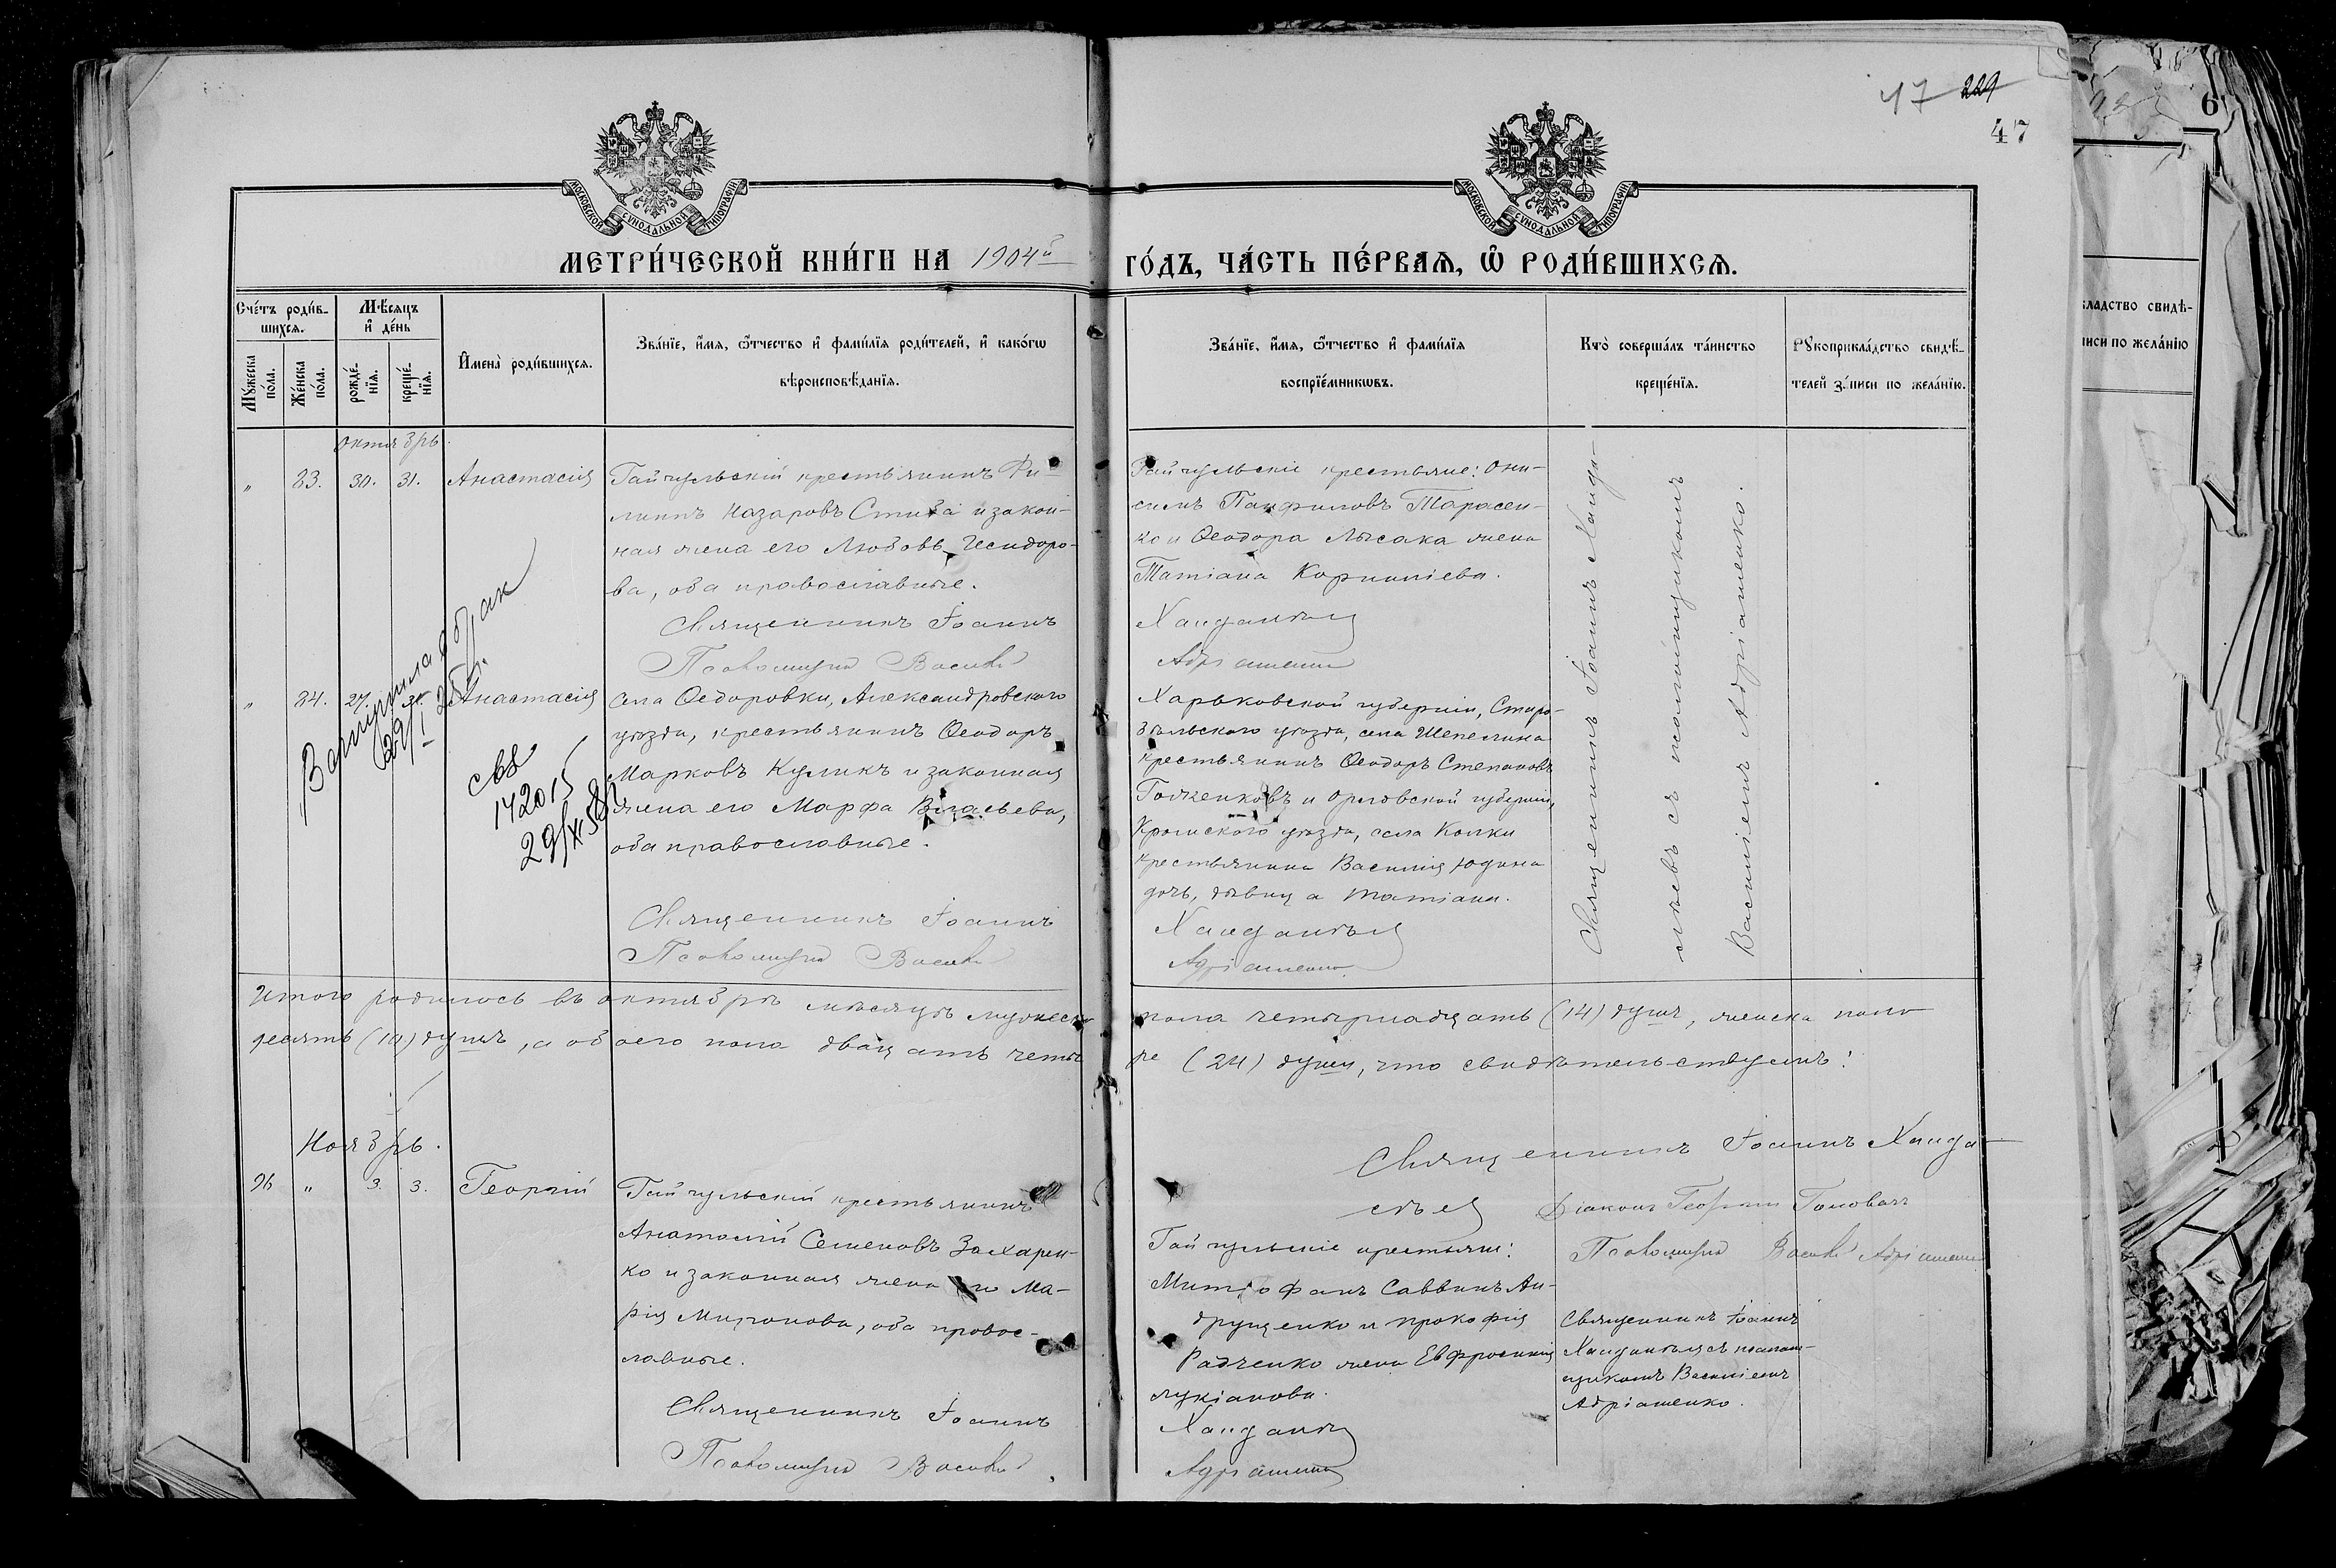 47 229
47
МОСКОВСКОЙ СѴНОДАЛЬНОЙ ТИПОГРАФІИ
МОСКОВСКОЙ СѴНОДАЛЬНОЙ ТИПОГРАФІИ
МЕТРИ́ЧЕСКОЙ КНИ́ГИ НА 1904й ГО́ДЪ, ЧА́СТЬ ПЕ́РВАѦ, Ѡ҆ РОДИ́ВШИХСѦ.
Сче́тъ роди́в-
шихсѧ.
Мꙋ́жеска
по́ла.
Же́нска
по́ла.
Мѣ́сѧцъ
и҆ де́нь
рожде́-
нїѧ.
креще́-
нїѧ.
И҆мена̀ роди́вшихсѧ.
Зва́нїе, и҆́мѧ, ѻ҆́тчество и҆ фами́лїѧ роди́телей, и҆ како́гѡ
вѣроисповѣ́данїѧ.
Зва́нїе, и҆́мѧ, ѻ҆́тчество и҆ фами́лїѧ
воспрїе́мникѡвъ.
Кто̀ соверша́лъ та́инство
креще́нїѧ.
Рꙋкоприкла́дство свидѣ́-
телей за́писи по жела́нїю.
октябрь.
" 83. 30. 31. Анастасія
Гайчульскій крестьянинъ Фи-
липпъ Назаровъ Стиба и закон-
ная жена его Любовь Исидоро-
ва, оба православные.
Священникъ Іоаннъ
Псаломщикъ Василій
Гайчульскіе крестьяне: Они-
симъ Панфиловъ Тарасен-
ко и Ѳеодора Лысака жена
Татіана Корниліева.
Хандалѣев
Адріашенко
Священникъ Іоаннъ Ханда-
лѣевъ съ псаломщикомъ
Василіемъ Адріашенко.
" 84. 27. 31. Анастасія
села Ѳедоровки, Александровского
уѣзда, крестьянинъ Ѳеодоръ
Марковъ Куликъ и законная
жена его Марфа Власьева,
оба православные.
Священникъ Іоаннъ
Псаломщикъ Василій
Харьковской губерніи, Старо-
бѣльского уѣзда, села Шепелина
крестьянинъ Ѳеодоръ Степановъ
и Орловской губерніи,
Кромского уѣзда, села Колки
крестьянина Василія Юдина
дочь, дѣвица Татіана.
Хандалѣев
Адріашенко
Вступила в брак
29/I 25 г.
свд
142015
29/XI 58 г
Итого родилось въ октябрѣ мѣсяцѣ мужеска пола четырнадцать (14) душъ, женска пола
десять (10) душъ, а обоего пола двадцать четыре (24) души, что свидѣтельствуемъ:
Священникъ Іоаннъ Ханда-
лѣев Діаконъ Георгій Головач
Псаломщикъ Василій Адріашенко
Ноябрь.
96 " 3. 3. Георгій
Гайчульскій крестьянинъ
Анатолій Семеновъ Захарен-
ко и законная жена его Ма-
рія Миронова, оба правос-
лавные.
Священникъ Іоаннъ
Псаломщикъ Василій
Гайчульскіе крестьяне:
Митрофанъ Саввинъ Ан-
друщенко и Прокофія
Радченко жена Евфросинія
Лукіанова.
Хандалѣев
Адріашенко
Священникъ Іоаннъ
Хандалѣевъ съ псалом-
щикомъ Василіемъ
Адріашенко.
6
кладство свидѣ-
писи по жела́нїю